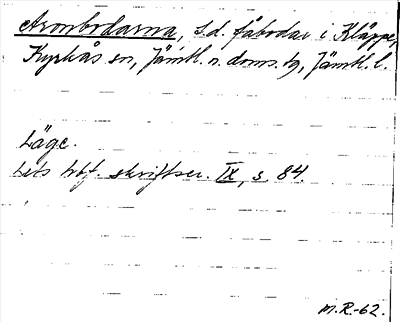 Aronbodarna, s.d. fäbodar i Kläppe,
Kyrkås sn, Jämtl. n. doms. tg, Jämtl. l.
Läge.
hbf. skriftser. IX, s. 84.
M.R.-62.